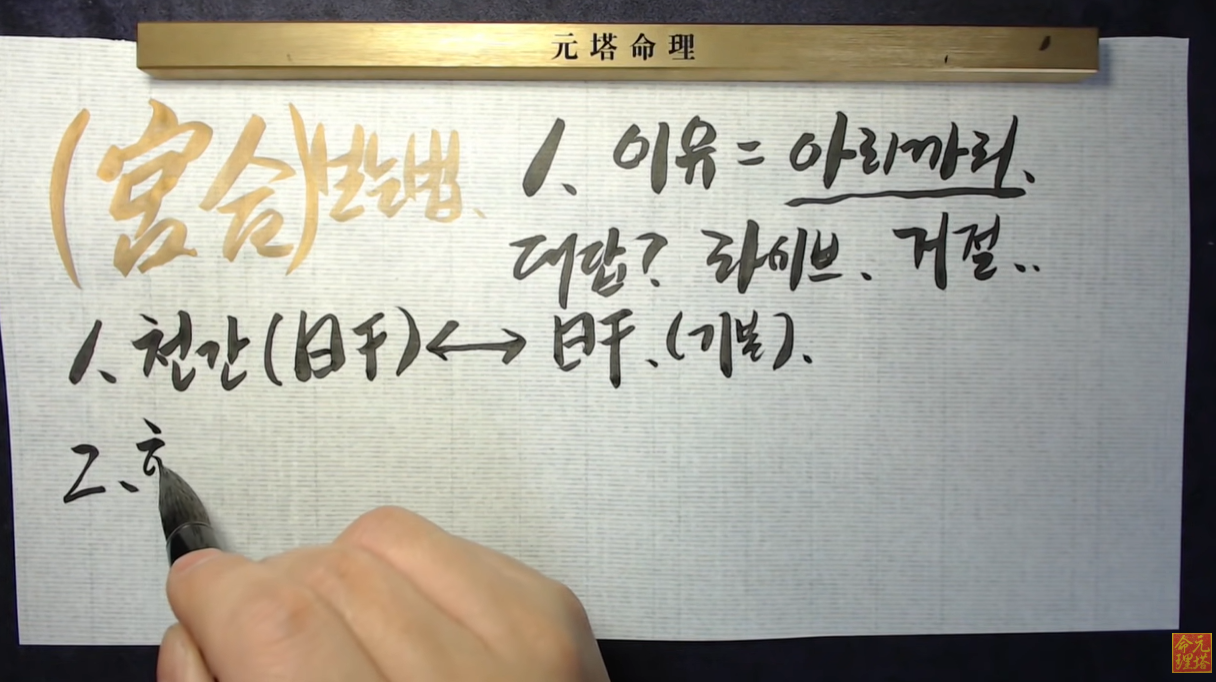 元塔命理
(宮合)보는법、
1、이유 = 아리까리、
대답? 라이브、거절..
1、천간(日干)↔日干、(기본)、
2、ㅎ
元塔命理